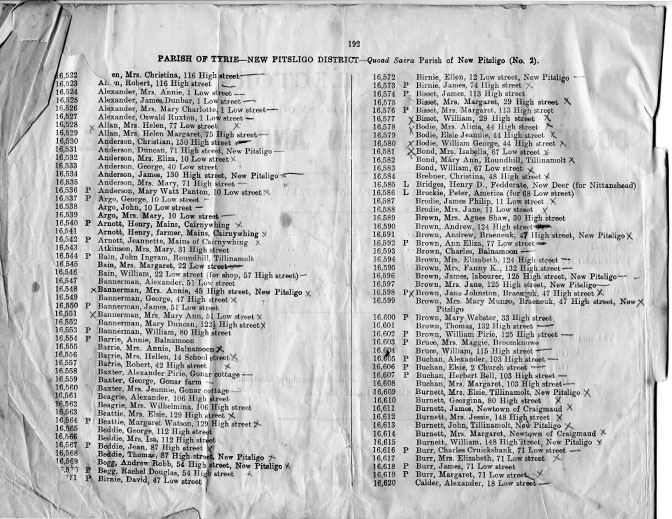 192
PARISH OF TYRIE—NEW PITSLIGO DISTRICT—Quoad Sacra Parish of New Pitsligo (No. 2).
16,522 en, Mrs. Christina, 116 High street
16,523 Robert, 116 High street
16,524 Alexander, Mrs. Annie, 1 Low street
16,525 Alexander, James Dunbar, 1 Low street
16,526 Alexander, Mrs. Mary Charlotte, 1 Low street
16,527 Alexander, Oswald Ruxton, 1 Low street
16,528 Allan, Mrs. Helen, 77 Low street
16,529 Allan, Mrs. Helen Margaret, 75 High street
16,530 Anderson, Christian, 130 High street
16,531 Anderson, Duncan, 71 High street, New Pitsligo
16,532 Anderson, Mrs. Eliza, 10 Low street
16,533 Anderson, George, 40 Low street
16,534 Anderson, James, 130 High street, New Pitsligo
16,535 Anderson, Mrs. Mary, 71 High street
16,536 P Anderson, Mary Watt Panton, 10 Low street
16,537 P Argo, George, 10 Low street
16,538 Argo, John, 10 Low street
16,539 Argo, Mrs. Mary, 10 Low street
16,540 P Arnott, Henry, Mains, Cairnywhing
16,541 Arnott, Henry, farmer, Mains, Cairnywhing
16,542 P Arnott, Jeannette, Mains of Cairnywhing
16,543 Atkinson, Mrs. Mary, 31 High street
16,544 P Bain, John Ingram, Roundhill, Tillinamolt
16,545 Bain, Mrs. Margaret, 22 Low street
16,546 Bain, William, 22 Low street (for shop, 57 High street)
16,547 Bannerman, Alexander, 51 Low street
16,548 Bannerman, Mrs. Annie, 45 High street, New Pitsligo
16,549 Bannerman, George, 47 High street
16,550 P Bannerman, James, 51 Low street
16,551 Bannerman, Mrs. Mary Ann, 51 Low street
16,552 Bannerman, Mary Duncan, 122½ High street
16,553 P Bannerman, William, 80 High street
16,554 P Barrie, Annie, Balnamoon
16,555 Barrie, Mrs. Annie, Balnamoon
16,556 Barrie, Mrs. Hellen, 14 School street
16,557 Barrie, Robert, 42 High street
16,558 Baxter, Alexander Pirie, Gonar cottage
16,559 Baxter, George, Gonar farm
16,560 Baxter, Mrs. Jeannie, Gonar cottage
16,561 Beagrie, Alexander, 106 High street
16,562 Beagrie, Mrs. Wilhelmina, 106 High street
16,563 Beattie, Mrs. Elsie, 129 High street
16,564 P Beattie, Margaret Watson, 129 High street
16,565 Beddie, George, 112 High street
16,566 Beddie, Mrs. Isa, 112 High street
16,567 P Beddie, Jean, 87 High street
16,568 Beddie, Thomas, 87 High street, New Pitsligo
16,569 Begg, Andrew Robb, 54 High street, New Pitsligo
P Begg, Rachel Douglas, 54 High street
71 P Birnie, David, 47 Low street
16,572 Birnie, Ellen, 12 Low street, New Pitsligo
16,573 P Birnie, James, 74 High street
16,574 P Bisset, James, 113 High street
16,575 Bisset, Mrs. Margaret, 29 High street
16,576 P Bisset, Mrs. Margaret, 113 High street
16,577 Bisset, William, 29 High street
16,578 Bodie, Mrs. Alicia, 44 High street
16,579 Bodie, Elsie Jeannie, 44 High street
16,580 Bodie, William George, 44 High street
16,581 Bond, Mrs. Isabella, 67 Low street
16,582 Bond, Mary Ann, Roundhill, Tillinamolt
16,583 Bond, William, 67 Low street
16,584 Brebner, Christina, 48 High street
16,585 L Bridges, Henry D., Fedderate, New Deer (for Nittanshead)
16,586 L Brockie, Peter, America (for 68 Low street)
16,587 Brodie, James Philip, 11 Low street
16,588 Brodie, Mrs. Jane, 11 Low street
16,589 Brown, Mrs. Agnes Shaw, 30 High street
16,590 Brown, Andrew, 124 High street
16,591 Brown, Andrew, Braeneuk, 47 High street, New Pitsligo
16,592 P Brown, Ann Eliza, 77 Low street
16,593 Brown, Charles, Balnamoon
16,594 Brown, Mrs. Elizabeth, 124 High street
16,595 Brown, Mrs. Fanny K., 132 High street
16,596 Brown, James, labourer, 125 High street, New Pitsligo
16,597 Brown, Mrs. Jane, 125 High street, New Pitsligo
16,598 P Brown, Jane Johnston, Braeneuk, 47 High street
16,599 Brown, Mrs. Mary Munro, Braeneuk, 47 High street, New
Pitsligo
16,600 P Brown, Mary Webster, 33 High street
16,601 Brown, Thomas, 132 High street
16,602 P Brown, William Pirie, 125 High street
16,603 P Bruce, Mrs. Maggie, Broomknowe
16,604 Bruce, William, 115 High street
16,605 P Buchan, Alexander, 103 High street
16,606 P Buchan, Elsie, 2 Church street
16,607 P Buchan, Herbert Bell, 103 High street
16,608 Buchan, Mrs. Margaret, 103 High street
16,609 Burnett, Mrs. Elsie, Tillinamolt, New Pitsligo
16,610 Burnett, Georgina, 80 High street
16,611 Burnett, James, Newtown of Craigmaud
16,612 Burnett, Mrs. Jessie, 148 High street
16,613 Burnett, John, Tillinamolt, New Pitsligo
16,614 Burnett, Mrs. Margaret, Newtown of Craigmaud
16,615 Burnett, William, 148 High street, New Pitsligo
16,616 P Burr, Charles Cruickshank, 71 Low street
16,617 Burr, Mrs. Elizabeth, 71 Low street
16,618 P Burr, James, 71 Low street
16,619 P Burr, Margaret, 71 Low street
16,620 Calder, Alexander, 18 Low street